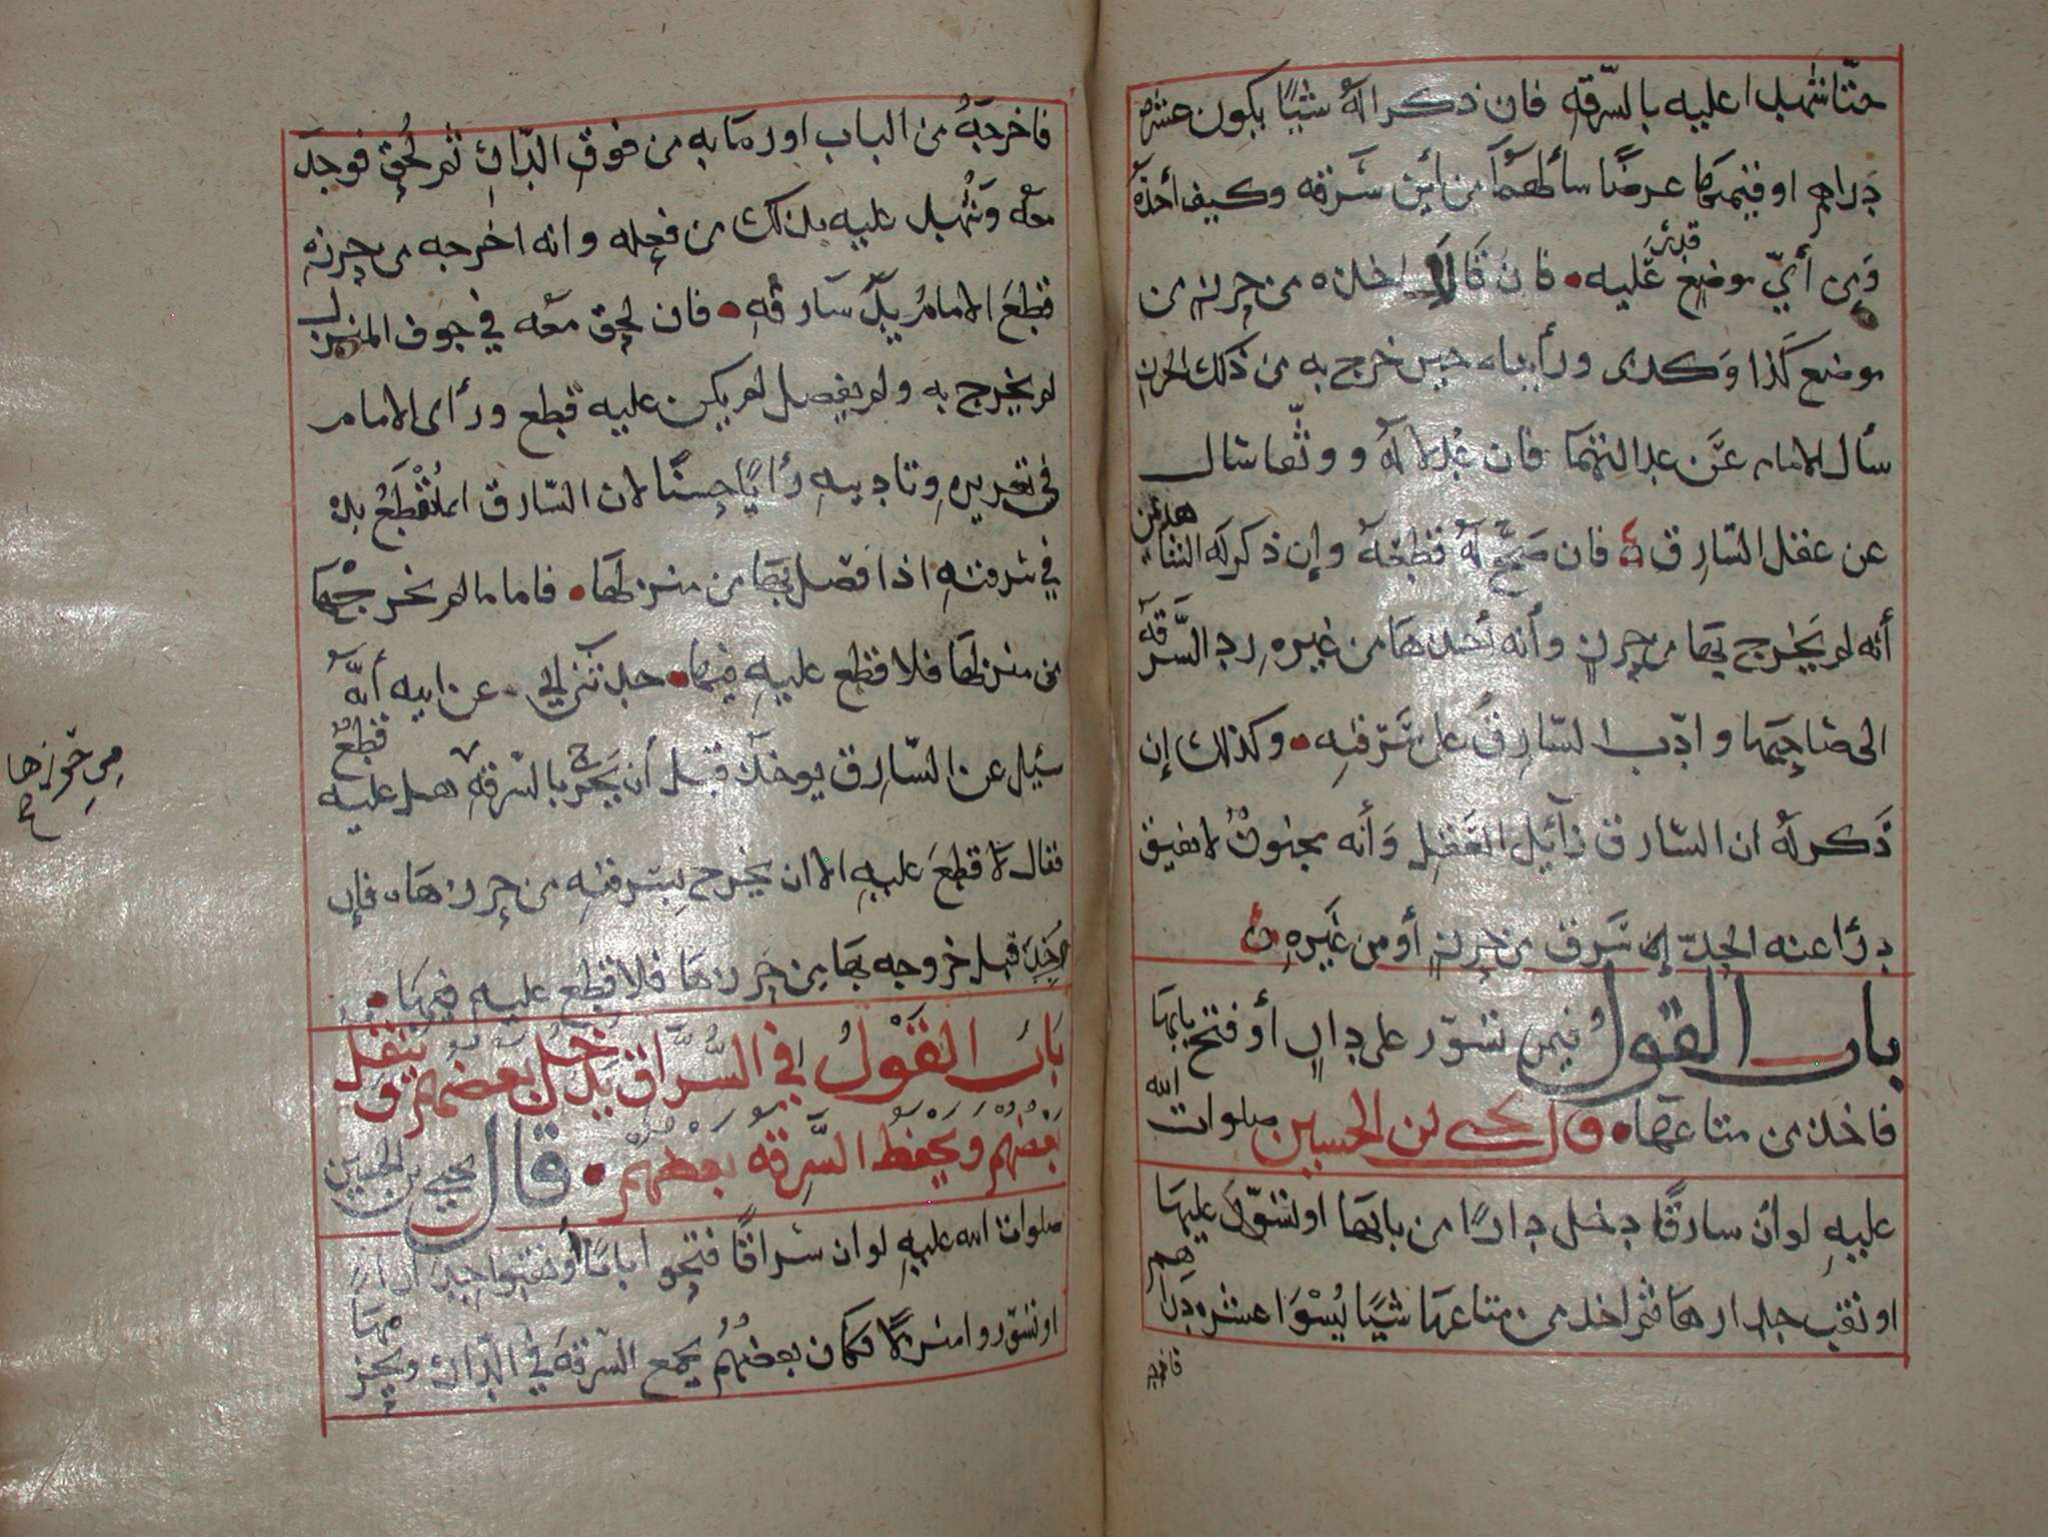 حتا شهدا عليه بالسّرقه فان ذكرا له شيئًا يكون عشره
دراهم او قيمتها عرضًا سألهما من أين سَرقه وكيف أخذه
وَمن أيّ موضع قدر عَليه • فان قالا اخذه من حرزه من
موضع كذا وكدى ورأيناه حين خرج به من ذلك الحرز
سأل الامام عَن عدالتهما فان عُدلا لهُ ووثّقا سَال
عن عقل السّارق فان صحّ لهُ قطعَهُ وإن ذكر له الشاهدين
أنه لم يَخرج بها من حرزٍ وأنه أخذها من غيره رد السَّرقه
الى صَاحبها وادّب السّارق على سَرقته • وكذلك إن
ذَكر لهُ ان السّارق زآئل العَقل وَأنه مجنونٌ لا يفيق
درَا عنه الحدّ إن سَرق من حرزٍ أو من غَيره
باب القول فيمن تسوّر على دارٍ أو فتح بابها
فاخذ من متاعها • قال يحيى بن الحسين صلوات الله
عليهِ لو أن سارقًا دخل دارًا من بابها او تسوّر عليها
او نقب جدارها ثم اخذ من متاعها شيئًا يُسْوَا عشره دراهم
فاخرجه
فاخرجَهُ من الباب او رمَا به من فوق الدّار ثم لُحق فوجد
معَه وَشهد عليه بذلك من فعله وانه اخرجه من حرزه
قطعَ الامامُ يدَ سَارقه • فان لحق معَه في جوف المنزل
لم يخرج به ولم يفصل لم يكن عليه قطع ورأى الامام
في تعزيره وتاديبه رأيًا حسنًا لان السّارق انما تُقْطَعُ يده
في سَرقته اذا فصل بها من منزلها • فاما ما لم يخرجْهَا
من منزلها فلا قطع عليه فيها • حدثني ابي عن ابيه أنّه
سُئل عن السّارق يوخذ قبل أن يخرج بالسّرقه هل عليه قطعٌ
فقال لا قطعَ عليه الا ان يخرج بسرقته من حرزها، فان
اُخِذَ قبل خروجه بها من حرزها فلا قطع عليه فيها •
من حرزها
بَابُ القَوْلُ في السُّرَّاق يدخل بعضهم وينقل
بَعْضهُم ويَحْفظ السَّرقه بَعضهم • قال يحيى بن الحسين
صلوات الله عليه لو ان سُراقًا فتحوا بابًا أو نقبوا جدارًا
او تسوّروا منزلًا فكان بعضهُم يجمع السّرقه في الدّار ويحز مها